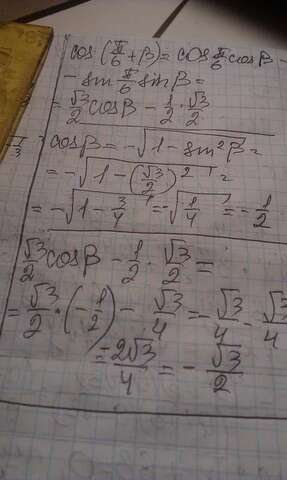 cos(π/6 + β) = cos π/6 cosβ -
- sin π/6 sinβ =
= √3/2 cosβ - 1/2 · √3/2
π/3
cosβ = -√(1 - sin²β) =
= -√(1 - (√3/2)²) =
= -√(1 - 3/4) = -√(1/4) = -1/2
√3/2 cosβ - 1/2 · √3/2 =
= √3/2 · (-1/2) - √3/4 = -√3/4 - √3/4
= -2√3/4 = -√3/2